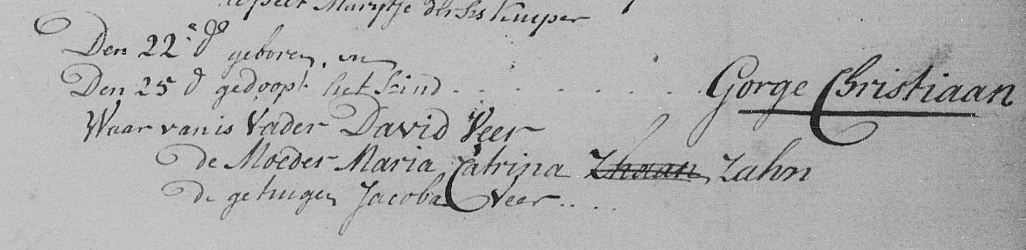 Marytje ders Kuiper
Den 22.e dº geboren, en
Den 25 dº gedoopt het kind . . . . . . . . . . Gorge Christiaan
Waar van is Vader David Veer
de Moeder Maria Catrina Zhaan, Zahn
de getuigen Jacoba Veer . . . .